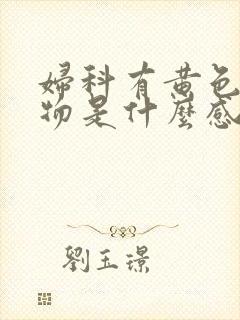 婦科有黄色
物是什麼感
劉玉璟